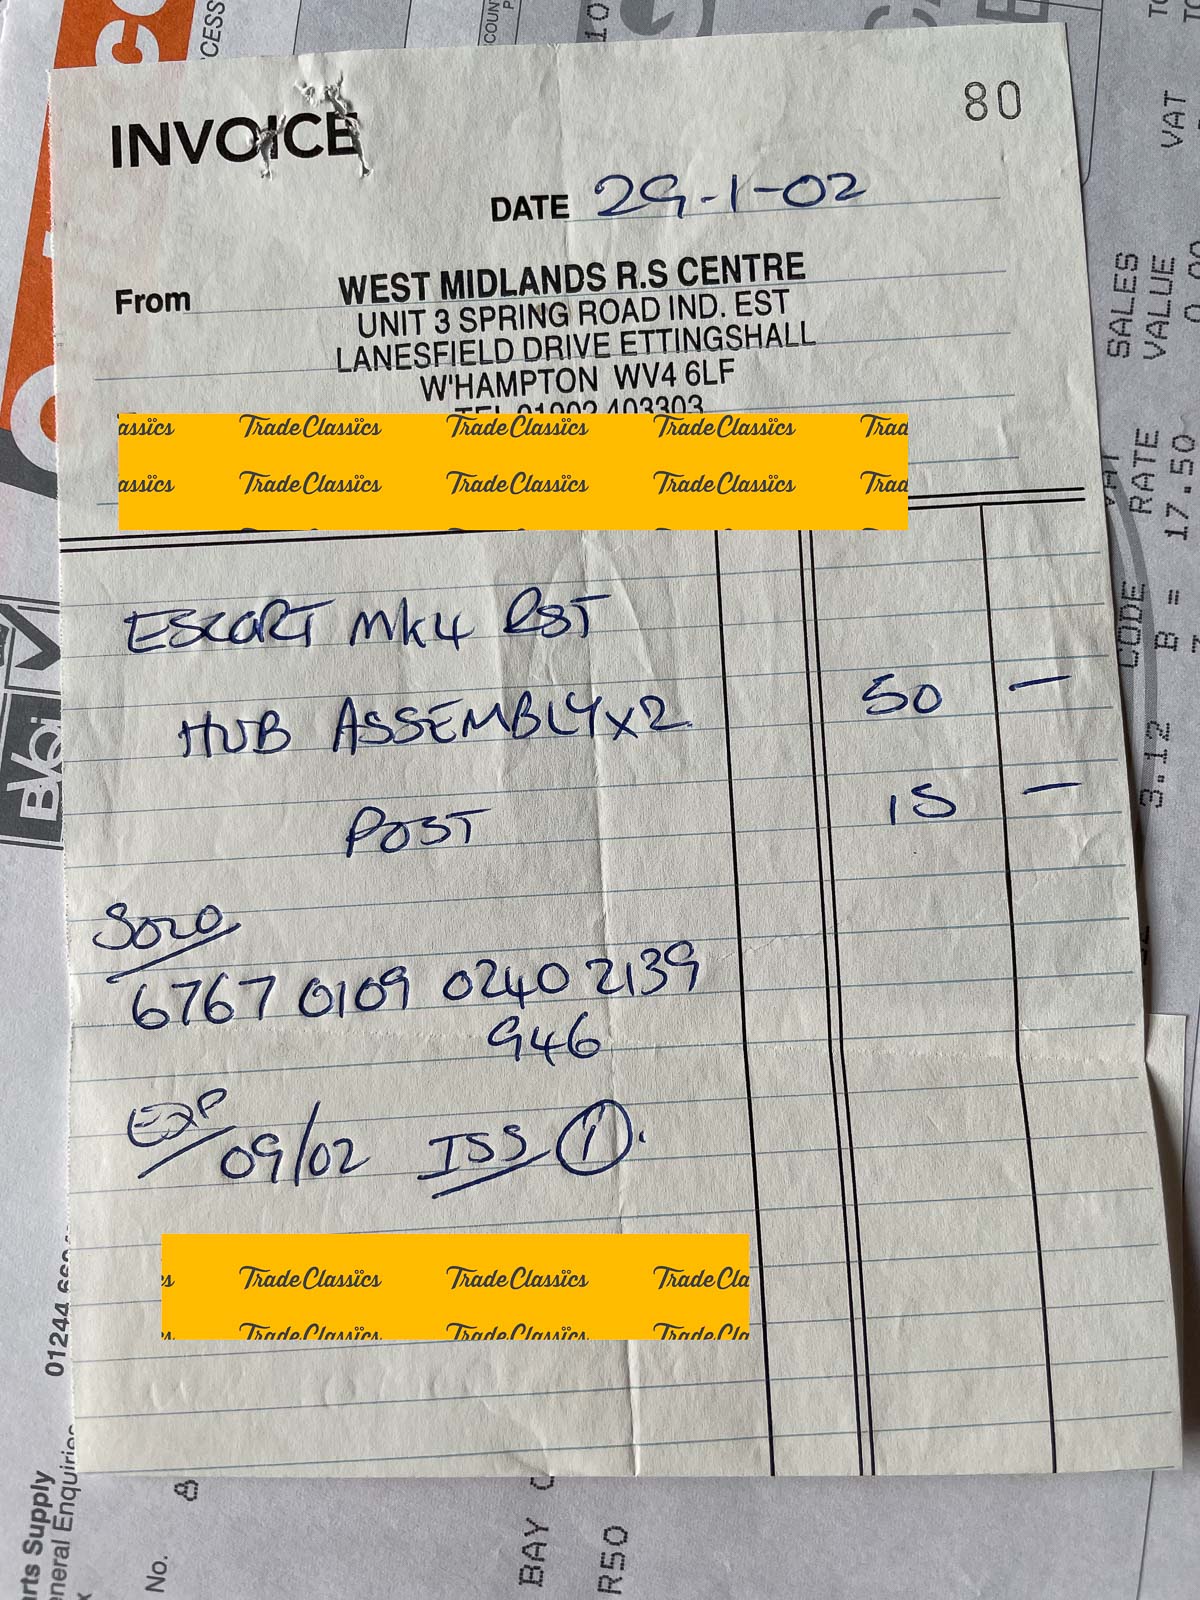 INVOICE
80
DATE 29-1-02
From
WEST MIDLANDS R.S CENTRE
UNIT 3 SPRING ROAD IND. EST
LANESFIELD DRIVE ETTINGSHALL
W'HAMPTON WV4 6LF
TEL 01902 403303
assics TradeClassics TradeClassics TradeClassics Trad
assics TradeClassics TradeClassics TradeClassics Trad
ESCORT MK4 RST
HUB ASSEMBLY x2 50 —
POST 15 —
SOLO
6767 0109 0240 2139
946
EXP 09/02 ISS 1.
TradeClassics TradeClassics TradeCla
TradeClassics TradeClassics TradeCla
SALES
VALUE
VAT
VAT
RATE
17.50
CODE
B =
3.12
01244
rts Supply
neral Enquiries
No.
BAY
R50